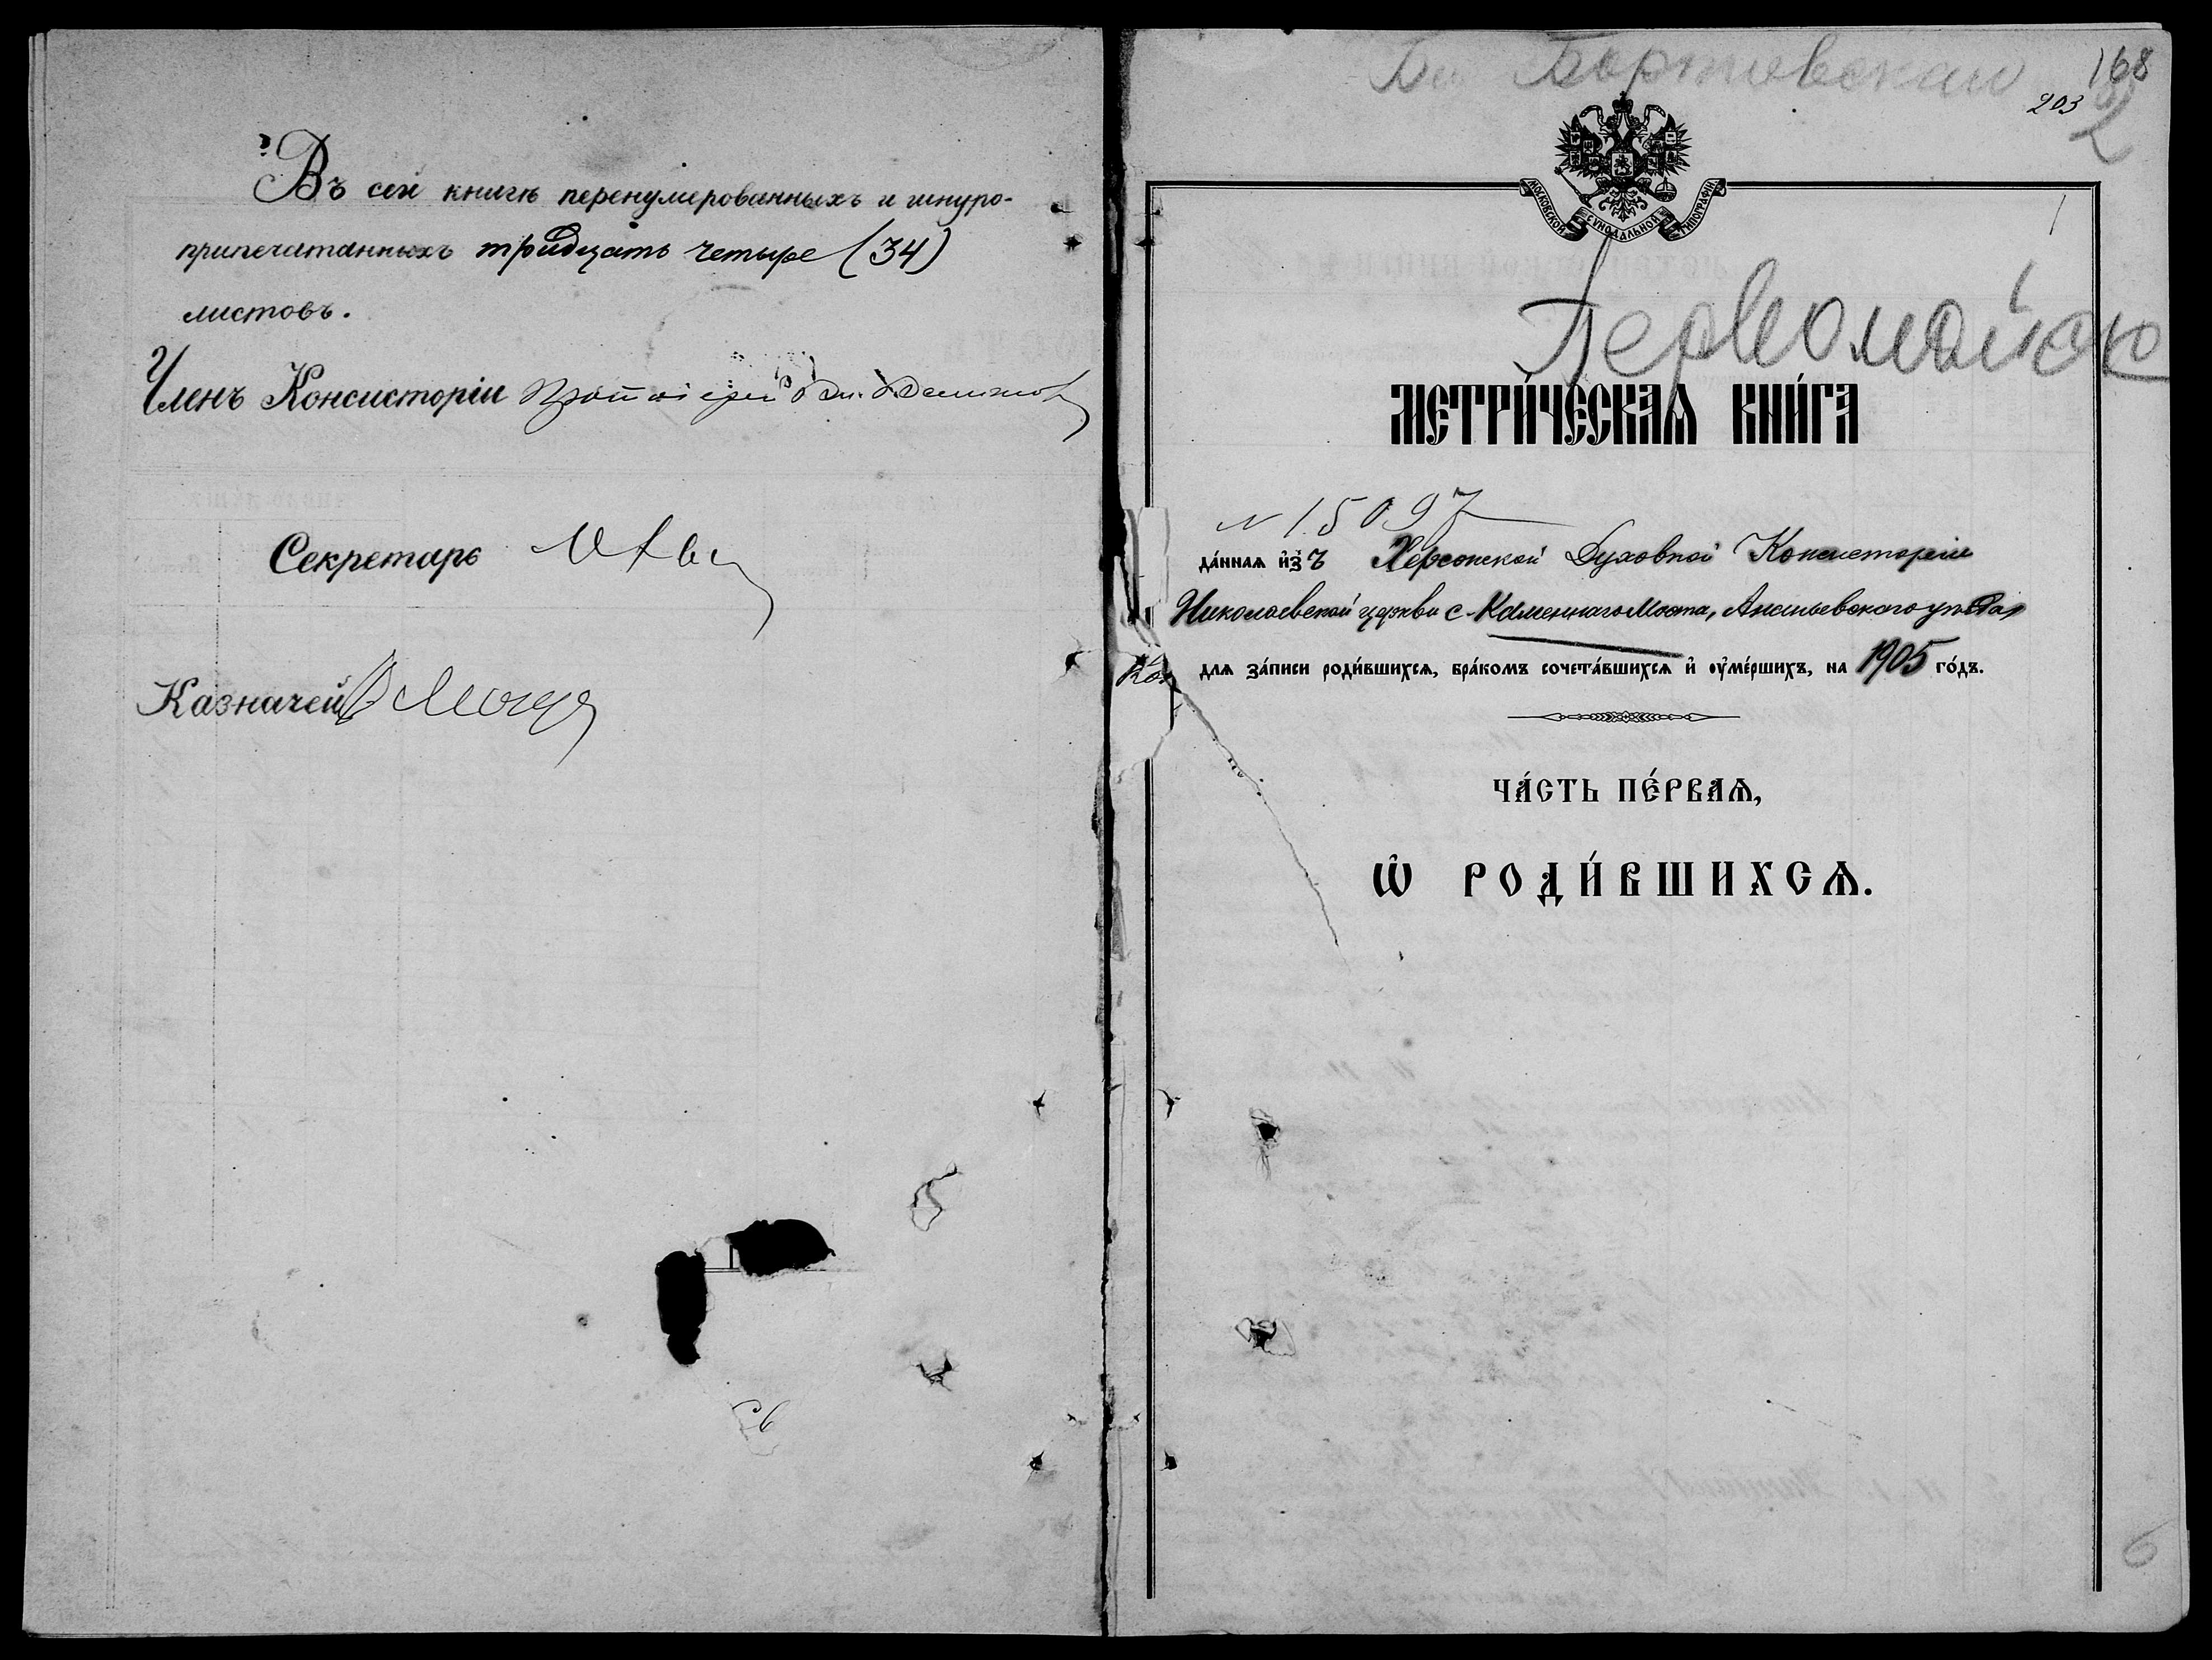 Въ сей книгѣ перенумерованныхъ и шнуро-
припечатанныхъ тридцать четыре (34)
листовъ.
Членъ Консисторіи Протоіерей
Секретарь
Казначей
168
203
2
МОСКОВСКОЙ СѴНОДАЛЬНОЙ ТИПОГРАФІИ
1
Первомайск
МЕТРИ́ЧЕСКАѦ КНИ́ГА
N 15097
да́ннаѧ и҆зъ Херсонской Духовной Консисторіи
Николаевской церкви с. Каменнаго Моста, Ананьевскаго уѣзда,
длѧ за́писи роди́вшихсѧ, бра́комъ сочета́вшихсѧ и҆ оу҆ме́ршихъ, на 1905 го́дъ.
ЧА́СТЬ ПЕ́РВАѦ,
Ѡ҆ РОДИ́ВШИХСѦ.
6